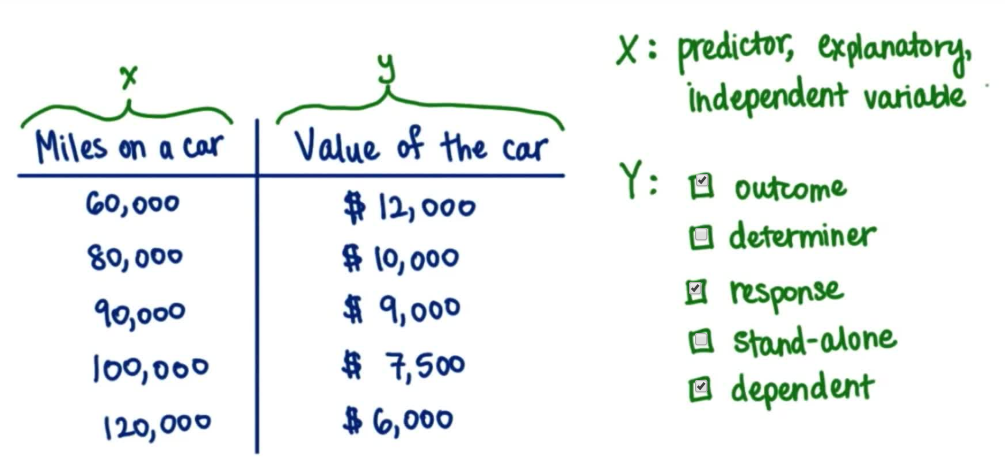 x y
Miles on a car Value of the car
60,000 $ 12,000
80,000 $ 10,000
90,000 $ 9,000
100,000 $ 7,500
120,000 $ 6,000
X: predictor, explanatory,
independent variable
Y: outcome
determiner
response
stand-alone
dependent